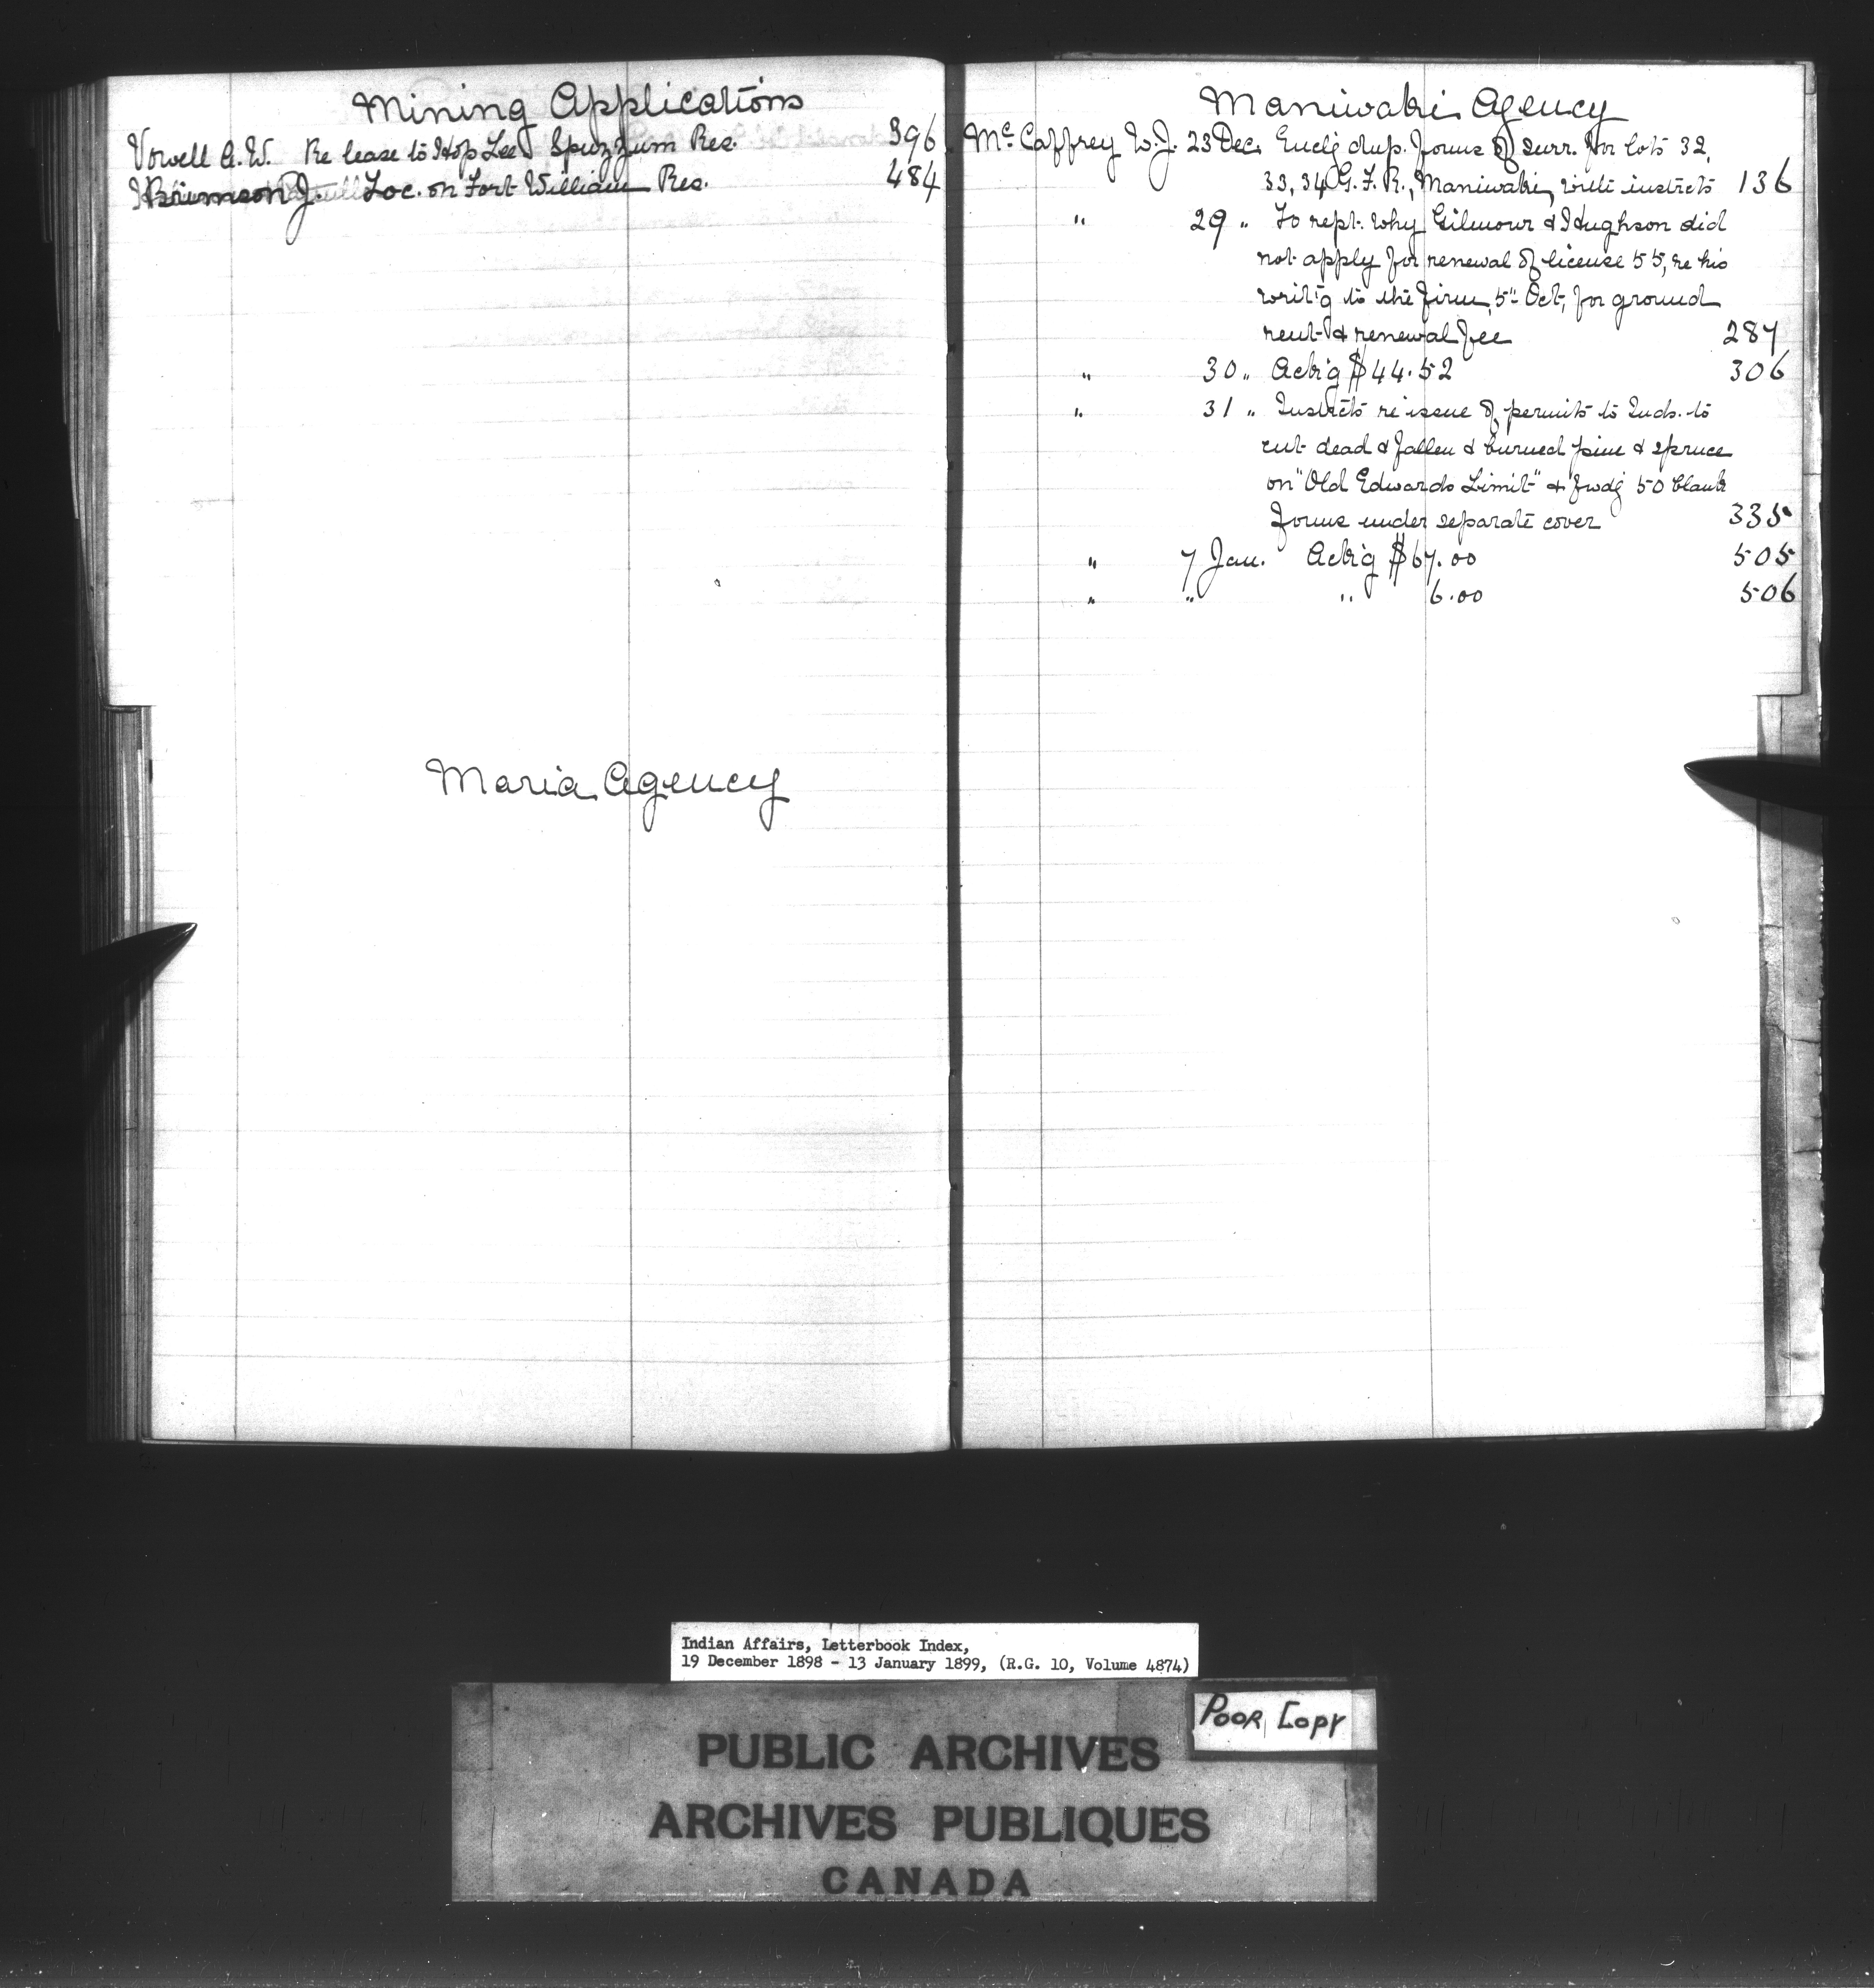 Mining Applications
Vowell A.W. Re lease to Hop Lee Spuzzum Res. 396
Brimson J. Loc. on Fort William Res. 484
Maria Agency
Maniwaki Agency
McCaffrey W.J. 23 Dec. Enclg dup. forms of surr. for lots 32,
33, 34 G.F.R., Maniwaki, with instrcts 136
" 29 " To rept. why Gilmour & Hughson did
not apply for renewal of license 55, re his
writ'g to the firm, 5" Oct, for ground
rent & renewal fee 287
" 30 " Ack'g $44.52 306
" 31 " Instrcts re issue of permits to Inds. to
cut dead & fallen & burned pine & spruce
on "Old Edwards Limit" & fwdg 50 blank
forms under separate cover 335
" 7 Jan. Ack'g $67.00 505
" " " 6.00 506
Indian Affairs, Letterbook Index,
19 December 1898 - 13 January 1899, (R.G. 10, Volume 4874)
Poor Copy
PUBLIC ARCHIVES
ARCHIVES PUBLIQUES
CANADA